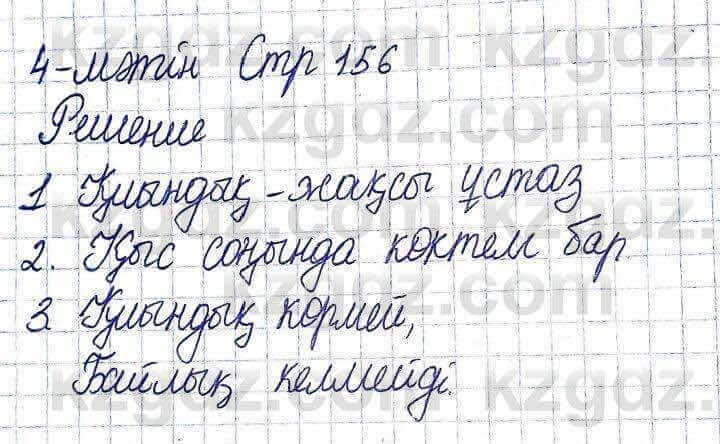 4-мәтін Стр 156
Решение
1 Қиындық - жақсы ұстаз
2. Қыс соңында көктем бар
3. Қиындық көрмей,
Байлық келмейді.
kzgdz.com